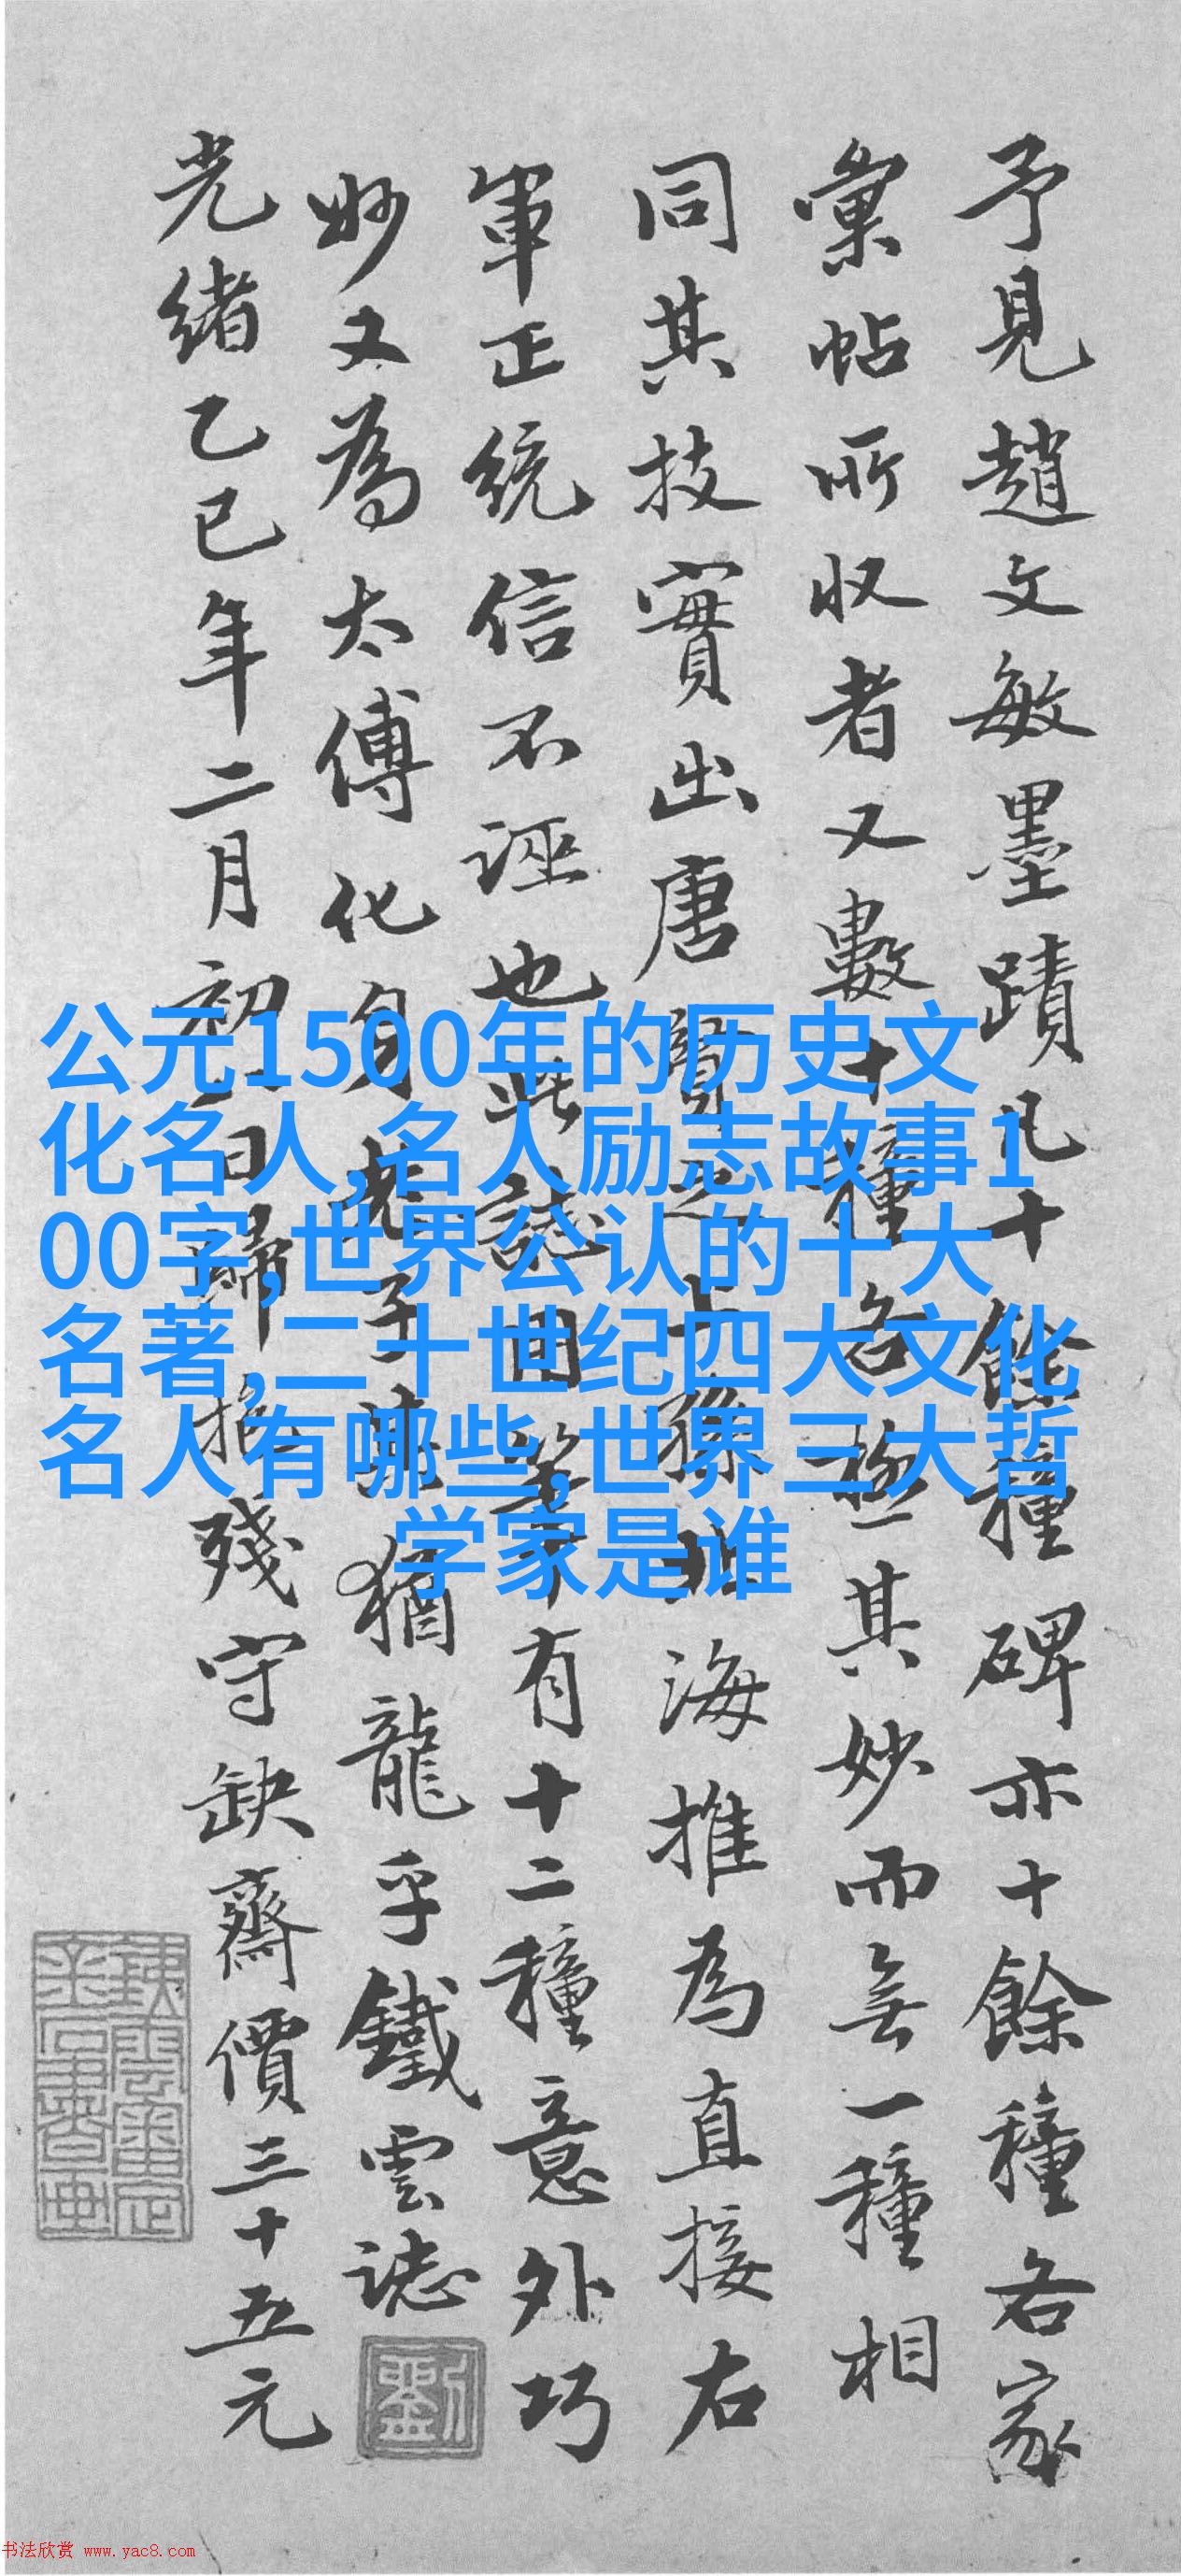 予見趙文敏墨蹟凡十餘種碑亦十餘種各家
彙帖所收者又數十種各極其妙而無一種相
同其技實出唐賢之上孫北海推為直接右
軍正統信不誣也此誌田筆有十二種意外巧
妙又為太傅化身老子其猶龍乎鐵雲誌
光緒乙巳年二月初一日歸抱殘守缺齋價三十五元
公元1500年的历史文
化名人,名人励志故事1
00字,世界公认的十大
名著,二十世纪四大文化
名人有哪些,世界三大哲
学家是谁
书法欣赏 www.yac8.com